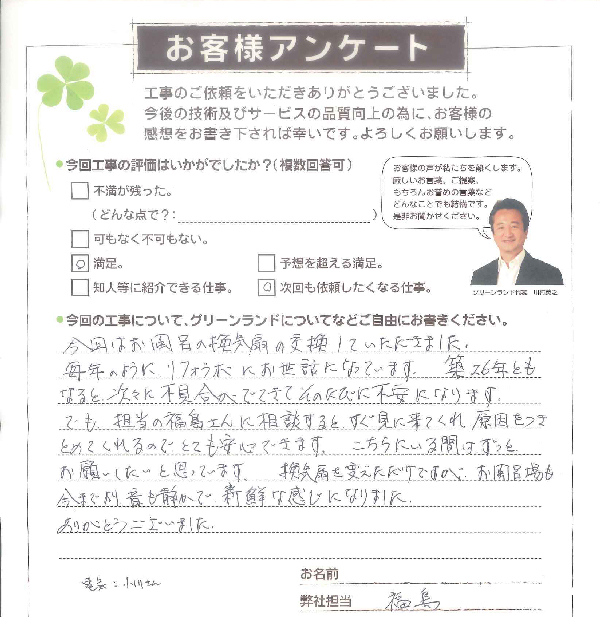 お客様アンケート
工事のご依頼をいただきありがとうございました。
今後の技術及びサービスの品質向上の為に、お客様の
感想をお書き下されば幸いです。よろしくお願いします。
今回工事の評価はいかがでしたか?(複数回答可)
お客様の声が私たちを動くします。
厳しいお言葉、ご提案、
もちろんお誉めの言葉など
どんなことでも結構です。
是非お聞かせください。
不満が残った。
(どんな点で?: )
可もなく不可もない。
満足。 予想を超える満足。
知人等に紹介できる仕事。 次回も依頼したくなる仕事。
グリーンランド代表
今回の工事について、グリーンランドについてなどご自由にお書きください。
今回はお風呂の換気扇の交換していただきました。
毎年のようにリフォームにお世話になっています。 築26年とも
なると次々に不具合がでてきてそのたびに不安になります。
でも、担当の福島さんに相談するとすぐ見に来てくれ原因をつき
とめてくれるのでとても安心できます。 こちらにいる間はずっと
お願いしたいと思っています。 換気扇を変えただけですが、お風呂場も
今までより音も静かで新鮮な感じになりました。
ありがとうございました。
お名前
弊社担当 福島